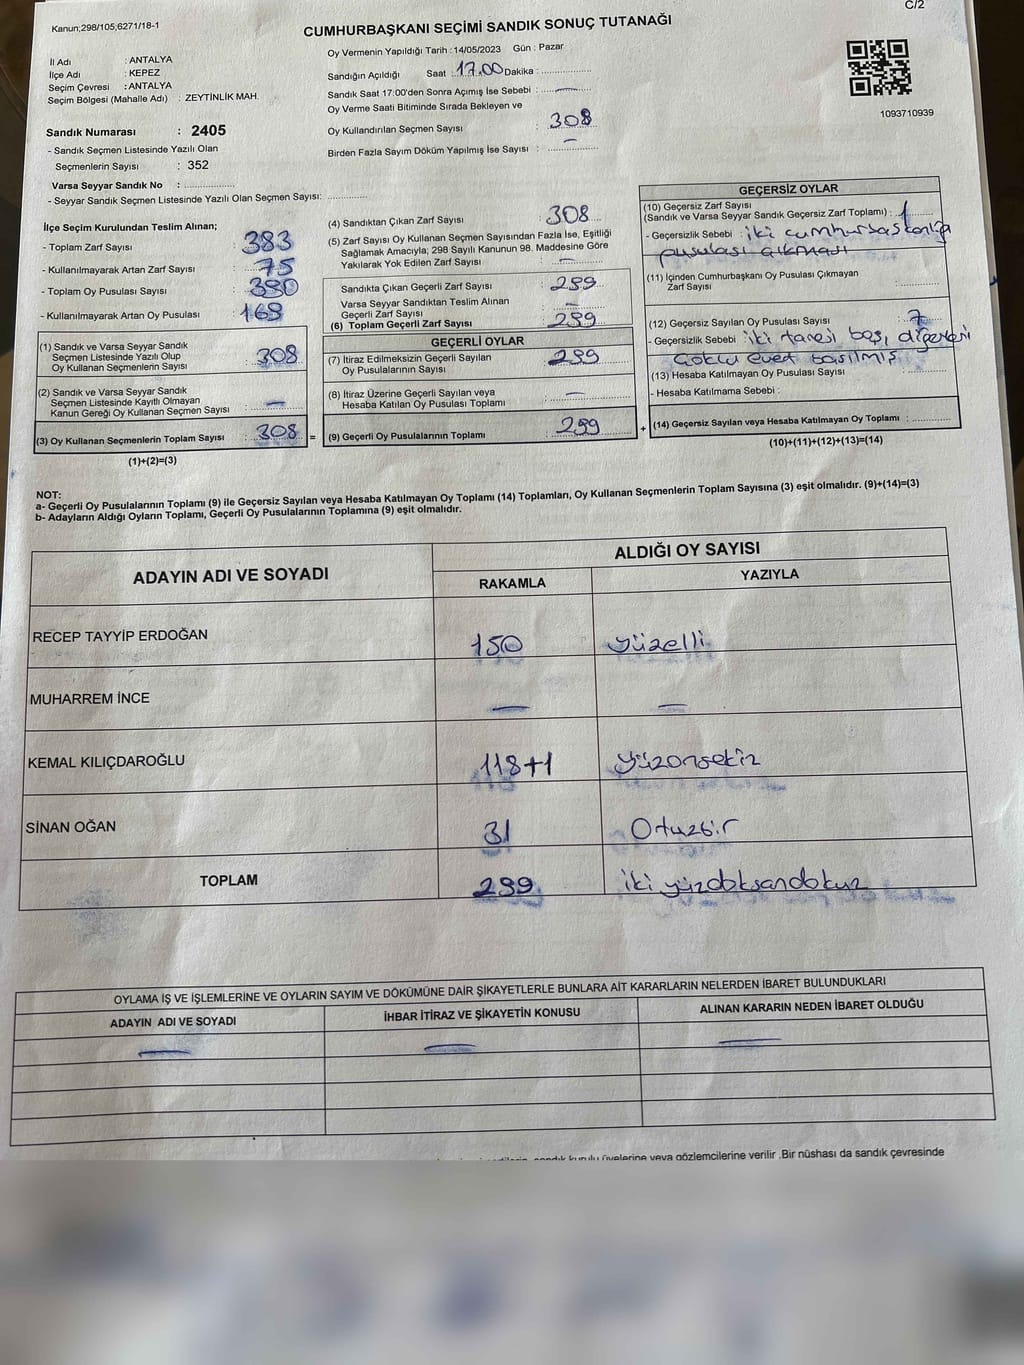 C/2
Kanun;298/105;6271/18-1
CUMHURBAŞKANI SEÇİMİ SANDIK SONUÇ TUTANAĞI
İl Adı : ANTALYA
İlçe Adı : KEPEZ
Seçim Çevresi : ANTALYA
Seçim Bölgesi (Mahalle Adı) : ZEYTİNLİK MAH.
Sandık Numarası : 2405
- Sandık Seçmen Listesinde Yazılı Olan
Seçmenlerin Sayısı : 352
Varsa Seyyar Sandık No : ................
- Seyyar Sandık Seçmen Listesinde Yazılı Olan Seçmen Sayısı: ..............
Oy Vermenin Yapıldığı Tarih : 14/05/2023 Gün : Pazar
Sandığın Açıldığı Saat 17.00 Dakika : ................
Sandık Saat 17:00'den Sonra Açımış İse Sebebi : —
Oy Verme Saati Bitiminde Sırada Bekleyen ve
Oy Kullandırılan Seçmen Sayısı : 308
Birden Fazla Sayım Döküm Yapılmış İse Sayısı : —
1093710939
İlçe Seçim Kurulundan Teslim Alınan;
- Toplam Zarf Sayısı : 383
- Kullanılmayarak Artan Zarf Sayısı : 75
- Toplam Oy Pusulası Sayısı : 380
- Kullanılmayarak Artan Oy Pusulası : 168
(1) Sandık ve Varsa Seyyar Sandık
Seçmen Listesinde Yazılı Olup
Oy Kullanan Seçmenlerin Sayısı : 308
(2) Sandık ve Varsa Seyyar Sandık
Seçmen Listesinde Kayıtlı Olmayan
Kanun Gereği Oy Kullanan Seçmen Sayısı : —
(3) Oy Kullanan Seçmenlerin Toplam Sayısı : 308 =
(1)+(2)=(3)
(4) Sandıktan Çıkan Zarf Sayısı : 308
(5) Zarf Sayısı Oy Kullanan Seçmen Sayısından Fazla İse, Eşitliği
Sağlamak Amacıyla; 298 Sayılı Kanunun 98. Maddesine Göre
Yakılarak Yok Edilen Zarf Sayısı : —
Sandıkta Çıkan Geçerli Zarf Sayısı : 299
Varsa Seyyar Sandıktan Teslim Alınan
Geçerli Zarf Sayısı : —
(6) Toplam Geçerli Zarf Sayısı : 299
GEÇERLİ OYLAR
(7) İtiraz Edilmeksizin Geçerli Sayılan
Oy Pusulalarının Sayısı : 299
(8) İtiraz Üzerine Geçerli Sayılan veya
Hesaba Katılan Oy Pusulası Toplamı : —
(9) Geçerli Oy Pusulalarının Toplamı : 299 +
GEÇERSİZ OYLAR
(10) Geçersiz Zarf Sayısı
(Sandık ve Varsa Seyyar Sandık Geçersiz Zarf Toplamı) : 1
- Geçersizlik Sebebi : iki cumhurbaşkanlığı
pusulası çıkması
(11) İçinden Cumhurbaşkanı Oy Pusulası Çıkmayan
Zarf Sayısı : ................
(12) Geçersiz Sayılan Oy Pusulası Sayısı : 7
- Geçersizlik Sebebi : iki tanesi boş, diğerleri
çoklu evet basılmış
(13) Hesaba Katılmayan Oy Pusulası Sayısı : ................
- Hesaba Katılmama Sebebi :
(14) Geçersiz Sayılan veya Hesaba Katılmayan Oy Toplamı : ................
(10)+(11)+(12)+(13)=(14)
NOT:
a- Geçerli Oy Pusulalarının Toplamı (9) ile Geçersiz Sayılan veya Hesaba Katılmayan Oy Toplamı (14) Toplamları, Oy Kullanan Seçmenlerin Toplam Sayısına (3) eşit olmalıdır. (9)+(14)=(3)
b- Adayların Aldığı Oyların Toplamı, Geçerli Oy Pusulalarının Toplamına (9) eşit olmalıdır.
ADAYIN ADI VE SOYADI
ALDIĞI OY SAYISI
RAKAMLA YAZIYLA
RECEP TAYYİP ERDOĞAN 150 yüzelli
MUHARREM İNCE — —
KEMAL KILIÇDAROĞLU 118+1 yüzonsekiz
SİNAN OĞAN 31 Otuzbir
TOPLAM 299 iki yüzdoksandokuz
OYLAMA İŞ VE İŞLEMLERİNE VE OYLARIN SAYIM VE DÖKÜMÜNE DAİR ŞİKAYETLERLE BUNLARA AİT KARARLARIN NELERDEN İBARET BULUNDUKLARI
ADAYIN ADI VE SOYADI İHBAR İTİRAZ VE ŞİKAYETİN KONUSU ALINAN KARARIN NEDEN İBARET OLDUĞU
— — —
sandık kurulu üyelerine veya gözlemcilerine verilir .Bir nüshası da sandık çevresinde